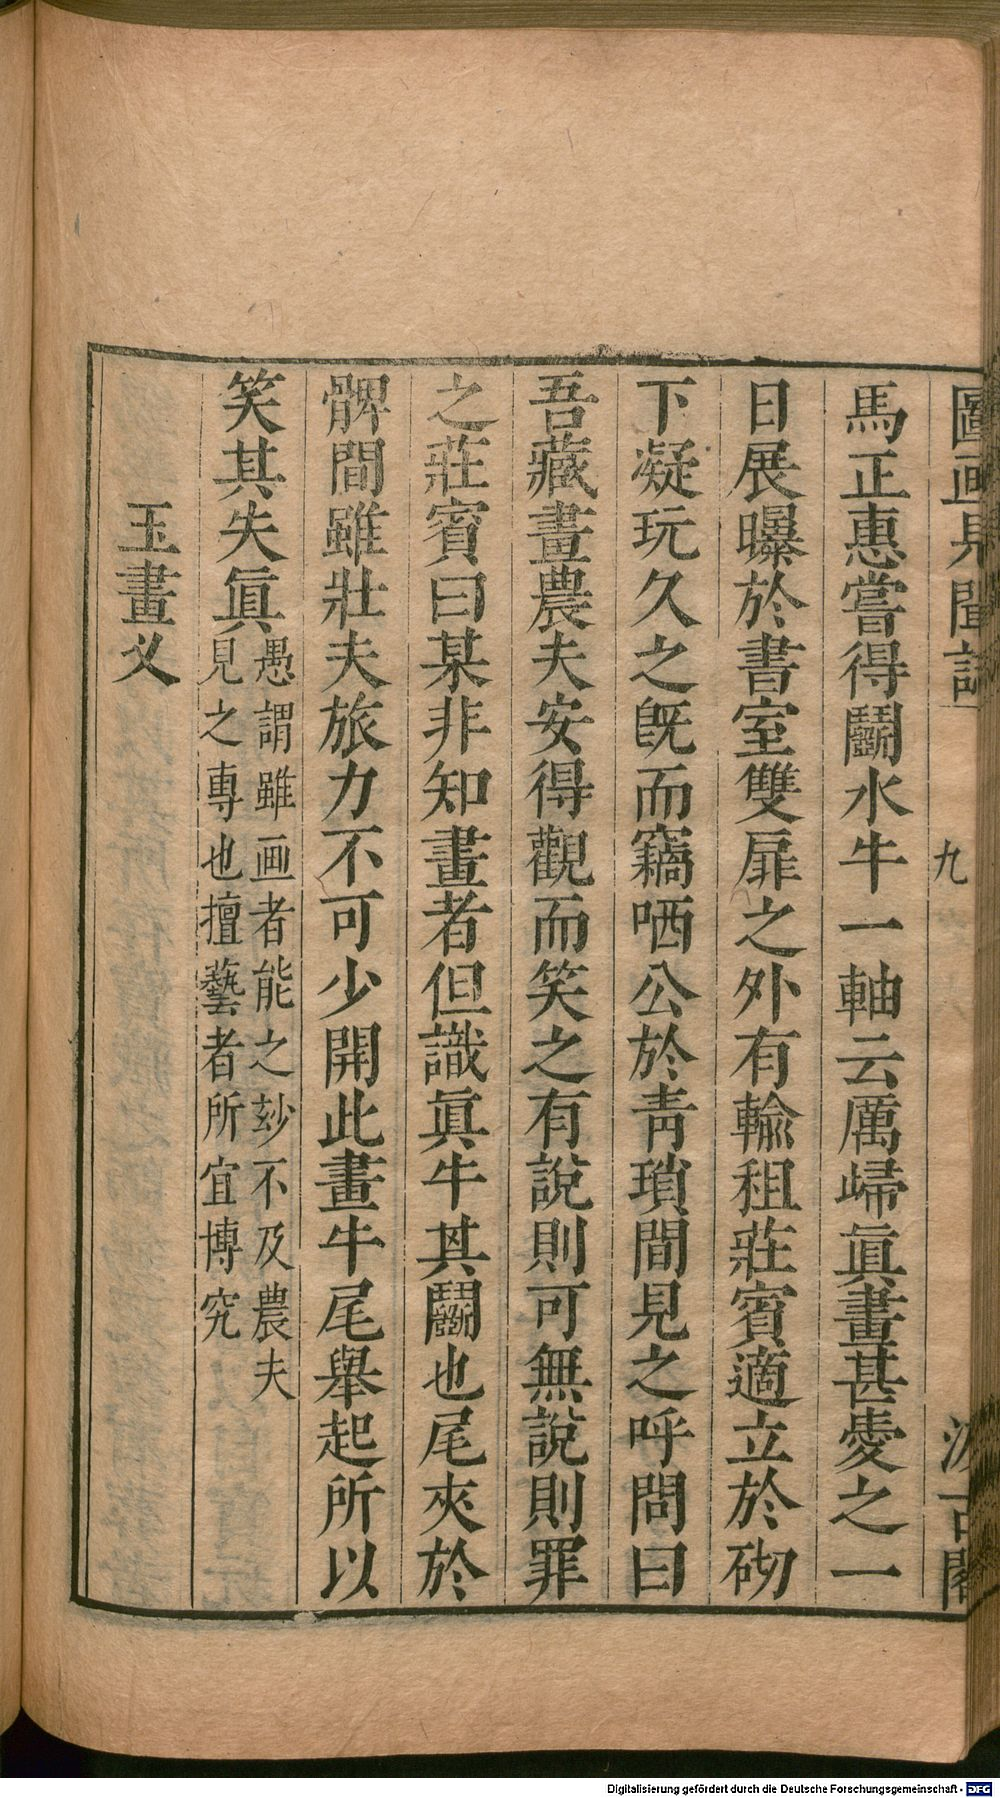 圖画見聞誌 九 汲古閣
馬正惠嘗得鬭水牛一軸云厲歸眞畫甚愛之一
日展曝於書室雙扉之外有輸租莊賓適立於砌
下凝玩久之旣而竊哂公於靑瑣間見之呼問曰
吾藏畫農夫安得觀而笑之有說則可無說則罪
之莊賓曰某非知畫者但識眞牛其鬭也尾夾於
髀間雖壯夫旅力不可少開此畫牛尾舉起所以
笑其失眞愚謂雖画者能之玅不及農夫
見之專也擅藝者所宜博究
玉畫义
Digitalisierung gefördert durch die Deutsche Forschungsgemeinschaft - DFG